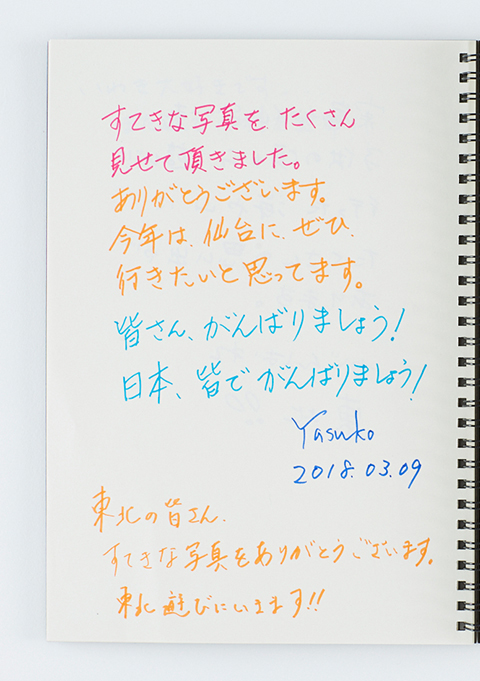 すてきな写真を たくさん
見せて頂きました。
ありがとうございます。
今年は、仙台に、ぜひ、
行きたいと思ってます。
皆さん、がんばりましょう!
日本、皆でがんばりましょう!
Yasuko
2018.03.09
東北の皆さん、
すてきな写真をありがとうございます。
東北遊びにいきます!!